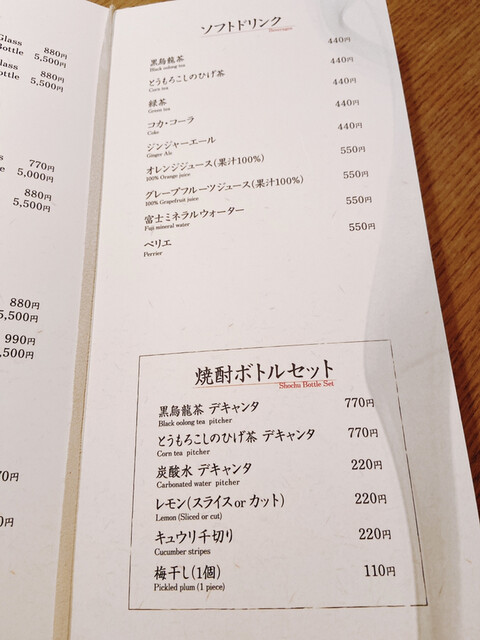 Glass 880円
Bottle 5,500円
Glass 880円
Bottle 5,500円
770円
5,000円
880円
5,500円
880円
5,500円
990円
ソフトドリンク
Beverages
黒烏龍茶 440円
Black oolong tea
とうもろこしのひげ茶 440円
Corn tea
緑茶 440円
Green tea
コカ・コーラ 440円
Coke
ジンジャーエール 440円
Ginger Ale
オレンジジュース(果汁100%) 550円
100% Orange juice
グレープフルーツジュース(果汁100%) 550円
100% Grapefruit juice
富士ミネラルウォーター 550円
Fuji mineral water
ペリエ 550円
Perrier
焼酎ボトルセット
Shochu Bottle Set
黒烏龍茶 デキャンタ 770円
Black oolong tea pitcher
とうもろこしのひげ茶 デキャンタ 770円
Corn tea pitcher
炭酸水 デキャンタ 220円
Carbonated water pitcher
レモン(スライスorカット) 220円
Lemon (Sliced or cut)
キュウリ千切り 220円
Cucumber stripes
梅干し(1個) 110円
Pickled plum (1 piece)